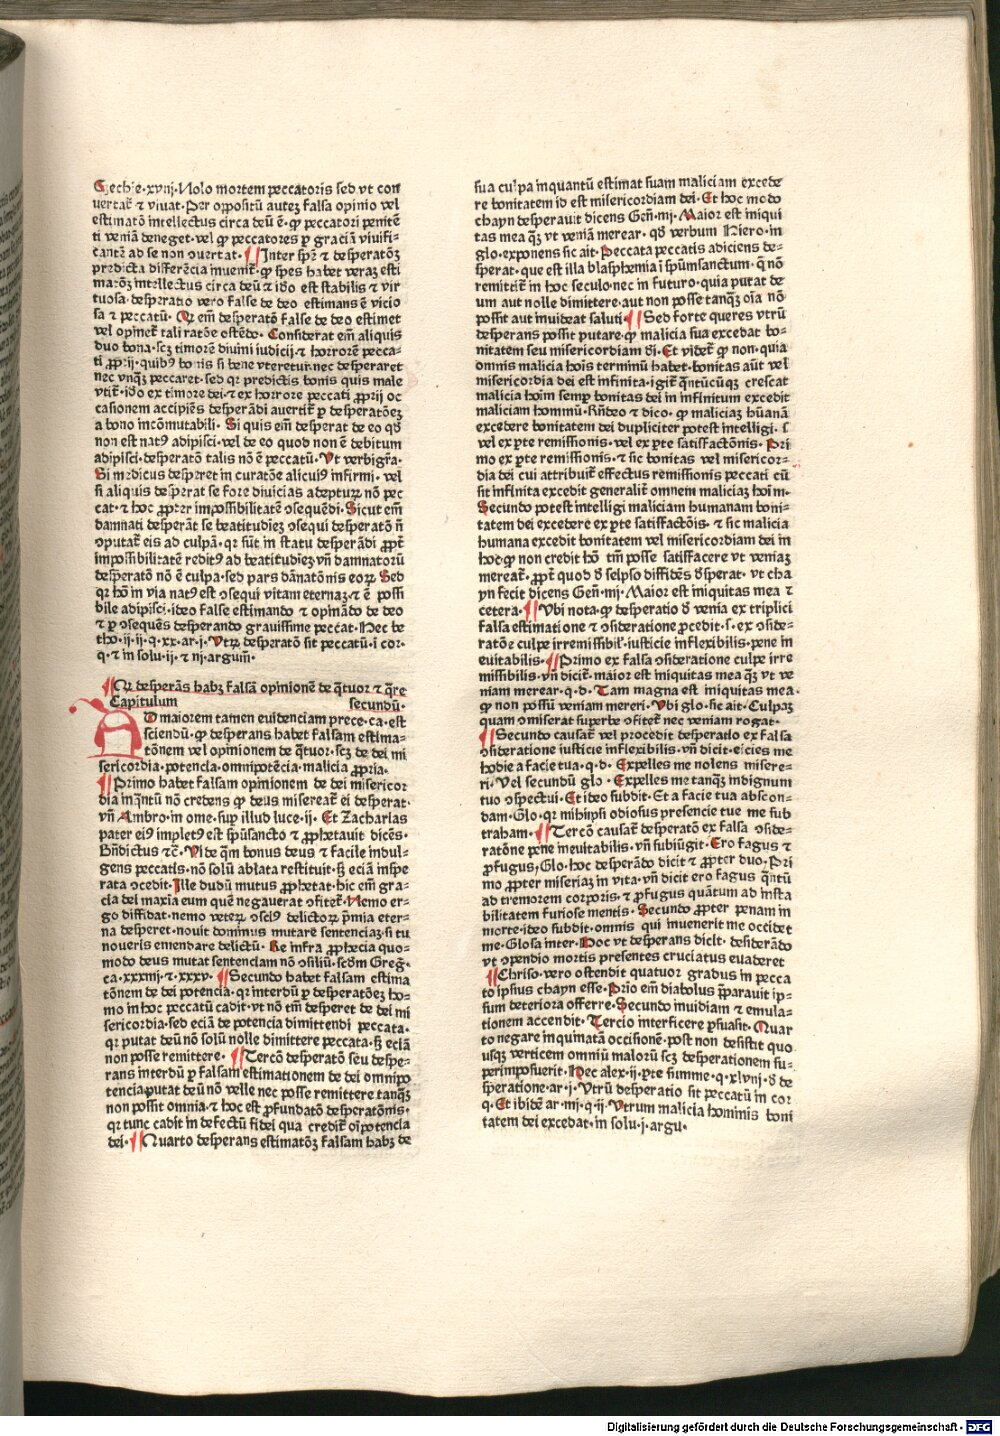 Ezechie·xviij·Nolo mortem peccatoris sed vt con
uertat̃ ⁊ viuat·Per oppositũ autez falsa opinio vel
estimatõ intellectus circa deũ ẽ·ꝙ peccatori penitẽ
ti veniã deneget·vel ꝙ peccatores ꝑ graciã viuifi-
cantẽ ad se non ↄuertat·¶Inter spẽ ⁊ desperatõꝫ
predicta differẽcia inuenit̃·ꝙ spes habet veraꝫ esti
matõꝫ intellectus circa deũ ⁊ iðo est stabilis ⁊ vir
tuosa·desperatio vero false de deo estimans ẽ vicio
sa ⁊ peccatũ· Qꝛ em̃ desperatõ false de deo estimet
vel opinet̃ tali ratõe ostẽdo· Considerat em̃ aliquis
duo bona·scꝫ timorẽ diuini iudicij·⁊ horrorẽ pecca-
ti ꝓprij·quibꝰ bonis si bene vteretur·nec desperaret
nec vnqꝫ peccaret·sed qꝛ predictis bonis quis male
vtit̃·iðo ex timore dei·⁊ ex horrore peccati ꝓprij oc
casionem accipiẽs desperãdi auertit̃ ꝑ desperatõeꝫ
a bono incõmutabili· Si quis em̃ desperat de eo qð
non est natꝰ adipisci·vel de eo quod non ẽ debitum
adipisci·desperatõ talis nõ ẽ peccatũ· Vt verbigr̃a·
Si medicus desperet in curatõe alicuiꝰ infirmi· vel
si aliquis desperat se fore diuicias adepturꝫ nõ pec
cat·⁊ hoc ꝓpter impossibilitatẽ ↄsequẽdi· Sicut em̃
damnati desperãt se beatitudieꝫ ↄsequi desperatõ ñ
ↄputat̃ eis ad culpã·qꝛ sũt in statu desperãdi ꝓpt̃
impossibilitatẽ reditꝰ ad beatitudieꝫ·vñ damnatorũ
desperatõ nõ ẽ culpa·sed pars dãnatõnis eorꝫ Sed
qꝛ hõ in via natꝰ est ↄsequi vitam eternaꝫ·⁊ ẽ possi
bile adipisci·ideo false estimando ⁊ opinãdo de deo
⁊ ꝑ ↄsequẽs desperando grauissime peccat·Hec be
tho·ij·ij·q·xx·ar·j· Vtrꝫ desperatõ sit peccatũ·i cor·
q·⁊ in solu·ij·⁊ iij·argum̃·
¶Qꝛ desperãs habꝫ falsã opinionẽ de qͣtuor ⁊ qͣre
Capitulum secundũ·
AD maiorem tamen euidenciam prece·ca·est
sciendũ·ꝙ desperans habet falsam estima-
tõnem vel opinionem de qͣtuor·scꝫ de dei mi
sericordia·potencia·omnipotẽcia·malicia ꝓpria·
¶Primo habet falsam opinionem de dei misericor
dia inqͣntũ nõ credens ꝙ deus misereat̃ ei desperat·
vñ Ambro·in ome·suꝑ illud luce·ij· Et Zacharias
pater eiꝰ impletꝰ est spũsancto ⁊ ꝓphetauit dicẽs·
Bñdictus ⁊c̃· Vide qͣm bonus deus ⁊ facile indul-
gens peccatis·nõ solũ ablata restituit·ꝫ eciã inspe
rata ↄcedit· Ille dudũ mutus ꝓphetat·hic em̃ gra-
cia dei maxia eum quẽ negauerat ↄfitet̃· Nemo er-
go diffidat·nemo veterꝫ ↄsciꝰ delictorꝫ p̃mia eter-
na desperet·nouit dominus mutare sentenciaꝫ·si tu
noueris emendare delictũ· Re infra ꝓphecia quo-
modo deus mutat sentenciam nõ ↄsiliũ·scðm Greg̃·
ca·xxxiiij·⁊·xxxv· ¶Secundo habet falsam estima
tõnem de dei potencia·qꝛ interdũ ꝑ desperatõeꝫ ho-
mo in hoc peccatũ cadit·vt nõ tm̃ desperet de dei mi
sericordia·sed eciã de potencia dimittendi peccata·
qꝛ putat deũ nõ solũ nolle dimittere peccata·ꝫ eciã
non posse remittere· ¶Tercõ desperatõ seu despe-
rans interdũ ꝑ falsam estimationem de dei omnipo
tencia·putat deũ nõ velle nec posse remittere tanqꝫ
non possit omnia·⁊ hoc est ꝓfundatõ desperatõnis·
qꝛ tunc cadit in defectũ fidei qua credit̃ oĩpotencia
dei·¶Quarto desperans estimatõꝫ falsam habꝫ de
sua culpa inquantũ estimat suam maliciam excede
re bonitatem id est misericordiam dei· Et hoc modo
chayn desperauit dicens Geñ·iiij· Maior est iniqui
tas mea qꝫ vt veniã merear· qð verbum Hiero·in
glo·exponens sic ait· Peccata peccatis adiciens de-
sperat·que est illa blasphemia ĩ spũmsanctum·q̃ nõ
remittit̃ in hoc seculo·nec in futuro·quia putat de
um aut nolle dimittere·aut non posse tanqꝫ oĩa nõ
possit aut inuideat saluti· ¶Sed forte queres vtrũ
desperans possit putare·ꝙ malicia sua excedat bo-
nitatem seu misericordiam di· Et videt̃ ꝙ non·quia
omnis malicia hoĩs terminũ habet·bonitas aũt vel
misericordia dei est infinita·igit̃ qͣntũcũqꝫ crescat
malicia hoĩm semꝑ bonitas dei in infinitum excedit
maliciam hommũ·Rñdeo ⁊ dico·ꝙ maliciaꝫ hũanã
excedere bonitatem dei dupliciter potest intelligi· s̃
vel ex ꝑte remissionis·vel ex ꝑte satisfactõnis· Pri
mo ex ꝑte remissionis·⁊ sic bonitas vel misericor-
dia dei cui attribuit̃ effectus remissionis peccati cũ
sit infinita excedit generalit̃ omnem maliciaꝫ hoĩm·
Secundo potest intelligi maliciam humanam boni-
tatem dei excedere ex ꝑte satisfactõis·⁊ sic malicia
humana excedit bonitatem vel misericordiam dei in
hoc·ꝙ non credit hõ tm̃ posse satisfacere vt veniaꝫ
mereat̃· ꝓpt̃ quod ð seipso diffidẽs ðsperat· vt cha
yn fecit dicens Geñ·iiij· Maior est iniquitas mea ⁊
cetera·¶Vbi nota·ꝙ desperatio ð venia ex triplici
falsa estimatione ⁊ ↄsideratione ꝓcedit·s·ex ↄside-
ratõe culpe irremissibil̃·iusticie inflexibilis·pene in
euitabilis·¶Primo ex falsa ↄsideratione culpe irre
missibilis·vñ dicit̃·maior est iniquitas mea qꝫ vt ve
niam merear·q·d· Tam magna est iniquitas mea·
ꝙ non possũ veniam mereri· Vbi glo·sic ait·Culpaꝫ
quam ↄmiserat superbe ↄfitet̃ nec veniam rogat·
¶Secundo causat̃ vel procedit desperatio ex falsa
ↄsideratione iusticie inflexibilis·vñ dicit·eicies me
hodie a facie tua·q·d· Expelles me nolens misere-
ri· Vel secundũ glo· Expelles me tanqꝫ indignum
tuo ↄspectui· Et ideo subdit·Et a facie tua abscon-
dam·Glo·qꝛ mihiipsi odiosus presencie tue me sub
traham·¶Tercõ causat̃ desperatõ ex falsa ↄside-
ratõne pene ineuitabilis·vñ subiũgit· Ero fagus ⁊
ꝓfugus·Glo·hoc desperãdo dicit ⁊ ꝓpter duo·Pri
mo ꝓpter miseriaꝫ in vita·vñ dicit ero fagus qͣntũ
ad tremorem corporis·⁊ ꝓfugus quãtum ad insta
bilitatem furiose mentis· Secundo ꝓpter penam in
morte·ideo subdit·omnis qui inuenerit me occidet
me·Glosa inter·Hoc vt desperans dicit· desiderãdo
vt ↄpendio mortis presentes cruciatus euaderet
¶Chriso·vero ostendit quatuor gradus in pecca
to ipsius chayn esse· Prio em̃ diabolus p̃parauit ip-
sum deteriora offerre· Secundo inuidiam ⁊ emula-
tionem accendit· Tercio interficere ꝑsuasit· Quar
to negare inquinatã occisionẽ·post non desistit quo
usqꝫ verticem omniũ malorũ scꝫ desperationem su-
perimposuerit· Hec alex·ij·pte summe·q·xlvij·ð de
speratione·ar·j· Vtrũ desperatio sit peccatũ in cor
q·Et ibidẽ ar·iiij·q·ij· Vtrum malicia hominis boni
tatem dei excedat·in solu·j·argu·
Digitalisierung gefördert durch die Deutsche Forschungsgemeinschaft - DFG